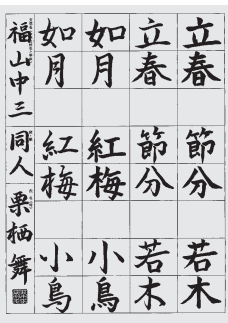 立春 節分 若木
立春 節分 若木
如月 紅梅 小鳥
如月 紅梅 小鳥
福山中三 同人 栗栖舞